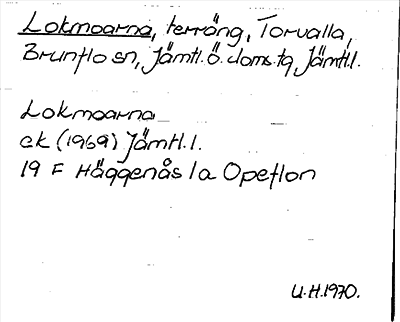 Lokmoarna, terräng, Torvalla,
Brunflo sn, Jämtl. ö. doms. tg, Jämtl.l.
Lokmoarna
ek (1969) Jämtl.l.
19 F Häggenås/a Opeflon
U.H.1970.